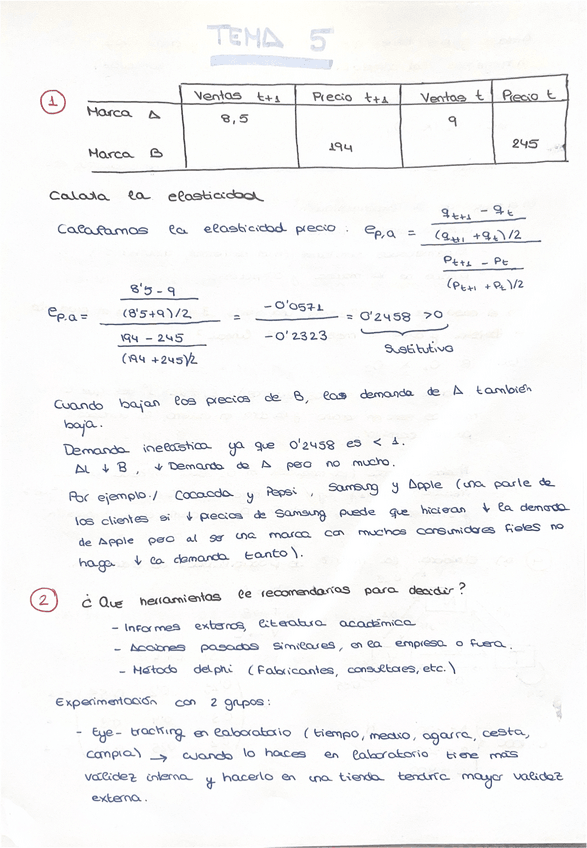 TEMA 5
1
Ventas t+1 Precio t+1 Ventas t Precio t
Marca A 8,5 9
Marca B 194 245
Calcula la elasticidad
Calculamos la elasticidad precio. e p,a = (q t+1 - q t / (q t+1 + q t)/2) / (P t+1 - P t / (P t+1 + P t)/2)
e p.a = (8'5 - 9 / (8'5+9)/2) / (194 - 245 / (194 + 245)/2) = -0'0571 / -0'2323 = 0'2458 > 0
Sustitutivo
Cuando bajan los precios de B, las demanda de A también
baja.
Demanda inelástica ya que 0'2458 es < 1.
Al ↓ B, ↓ Demanda de A pero no mucho.
Por ejemplo / Cocacola y Pepsi, Samsung y Apple (una parte de
los clientes si ↓ precios de Samsung puede que hicieran ↓ la demanda
de Apple pero al ser una marca con muchos consumidores fieles no
haga ↓ la demanda tanto).
2 ¿Que herramientas le recomendarías para decidir?
- Informes externos, literatura académica
- Acciones pasadas similares, en la empresa o fuera.
- Método delphi (Fabricantes, consultores, etc.)
Experimentación con 2 grupos:
- Eye-tracking en laboratorio (tiempo, medio, agarra, cesta,
compra) → cuando lo haces en laboratorio tiene más
validez interna y hacerlo en una tienda tendría mayor validez
externa.